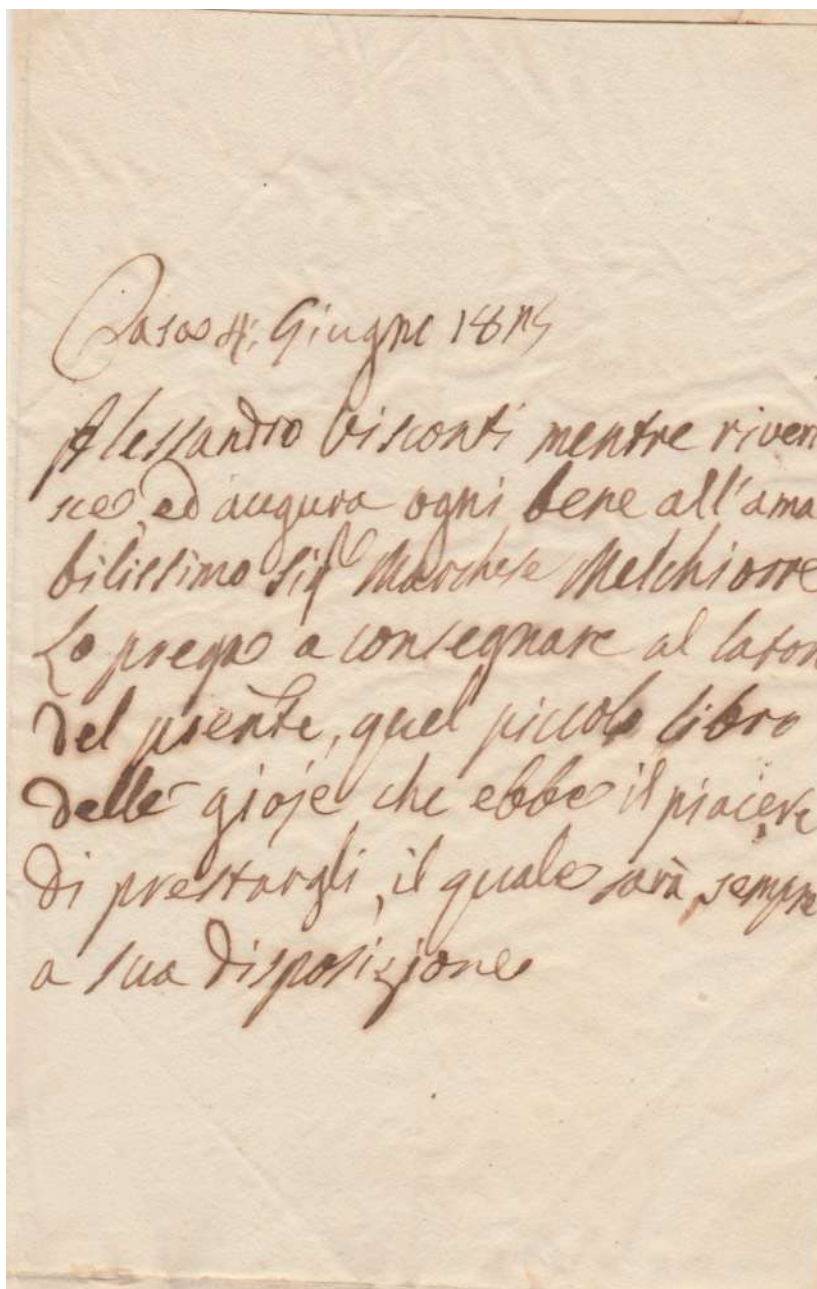 Casa 4: Giugno 18
Alessandro Visconti mentre riveri
sce, ed augura ogni bene all'ama
bilissimo Sigr Marchese Melchiorre
Lo prega a consegnare al lator
del pnte, quel piccolo libro
delle gioje che ebbe il piacere
di prestargli, il quale sarà sempre
a sua disposizione